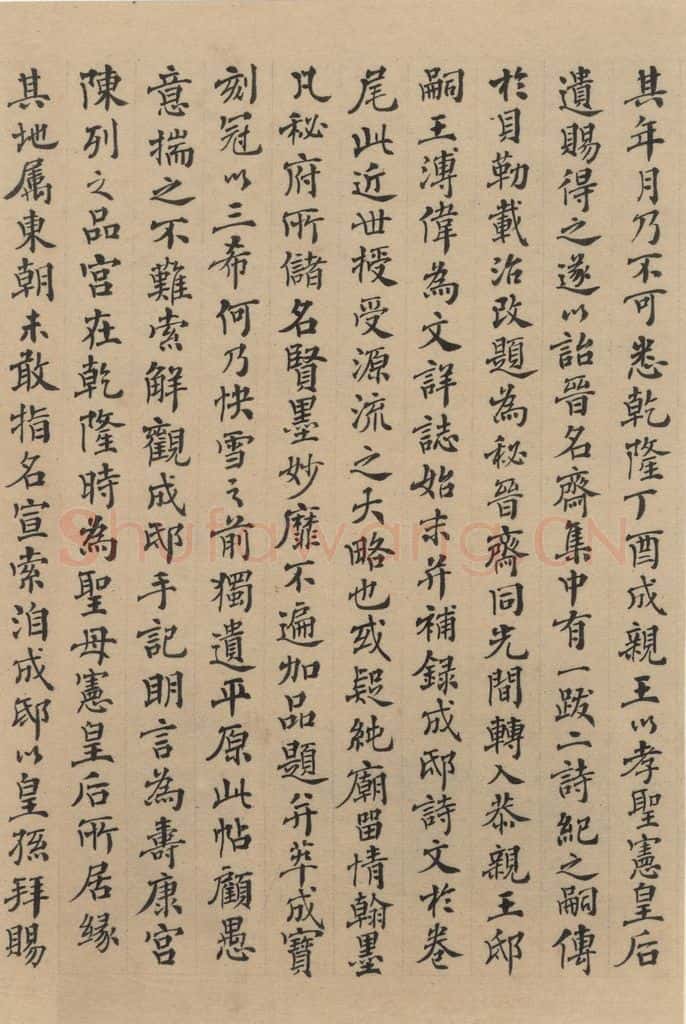 其年月乃不可悉乾隆丁酉成親王以孝聖憲皇后
遺賜得之遂以詒晉名齋集中有一跋二詩紀之嗣傳
於貝勒載治改題為秘晉齋同光間轉入恭親王邸
嗣王溥偉為文詳誌始末并補錄成邸詩文於卷
尾此近世授受源流之大略也或疑純廟留情翰墨
凡秘府所儲名賢墨妙靡不遍加品題并萃成寶
刻冠以三希何乃快雪之前獨遺平原此帖顧愚
意揣之不難索解觀成邸手記明言為壽康宮
陳列之品宮在乾隆時為聖母憲皇后所居緣
其地属東朝未敢指名宣索洎成邸以皇孫拜賜
Shufawang.CN